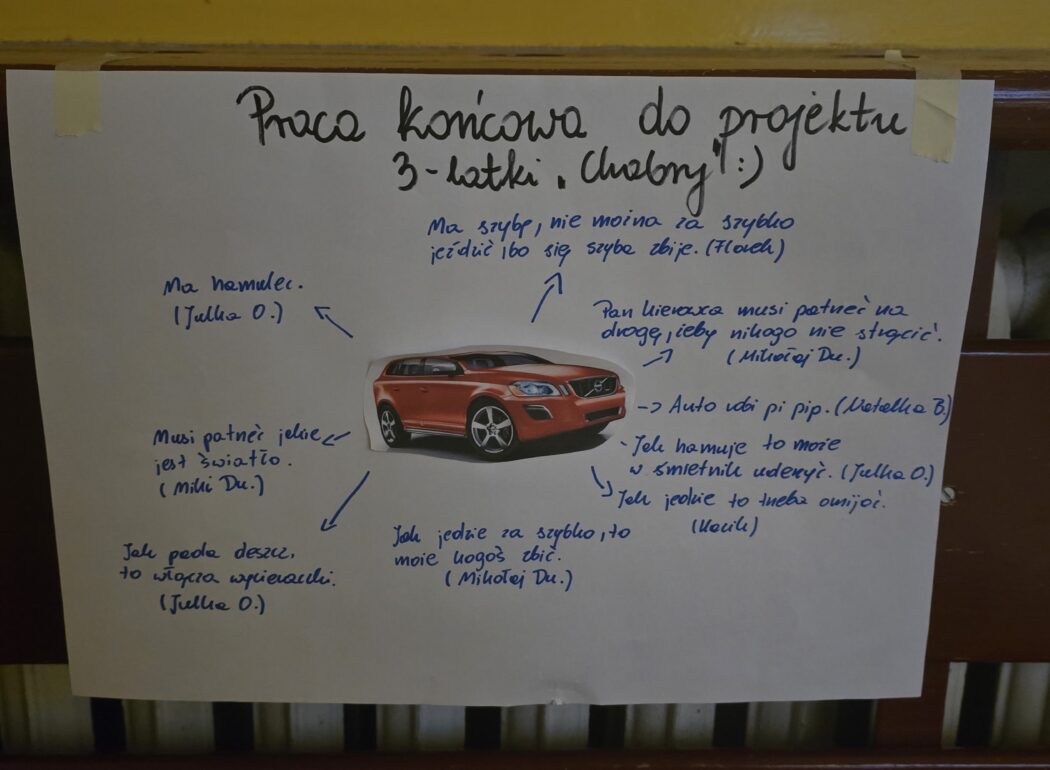 Praca końcowa do projektu
3-latki "Chabry" :)
Ma szybę, nie można za szybko
jeździć, bo się szyba zbije. (Florek)
Ma hamulec.
(Julka O.)
Pan kierowca musi patrzeć na
drogę, żeby nikogo nie strącić.
(Mikołaj Du.)
-> Auto robi pi pip. (Natalka B.)
Musi patrzeć jakie
jest światło.
(Miki Du.)
Jak hamuje to może
w śmietnik uderzyć. (Julka O.)
Jak jedzie to trzeba omijać.
(Kacik)
Jak pada deszcz,
to włącza wycieraczki.
(Julka O.)
Jak jedzie za szybko, to
może kogoś zbić.
(Mikołaj Du.)